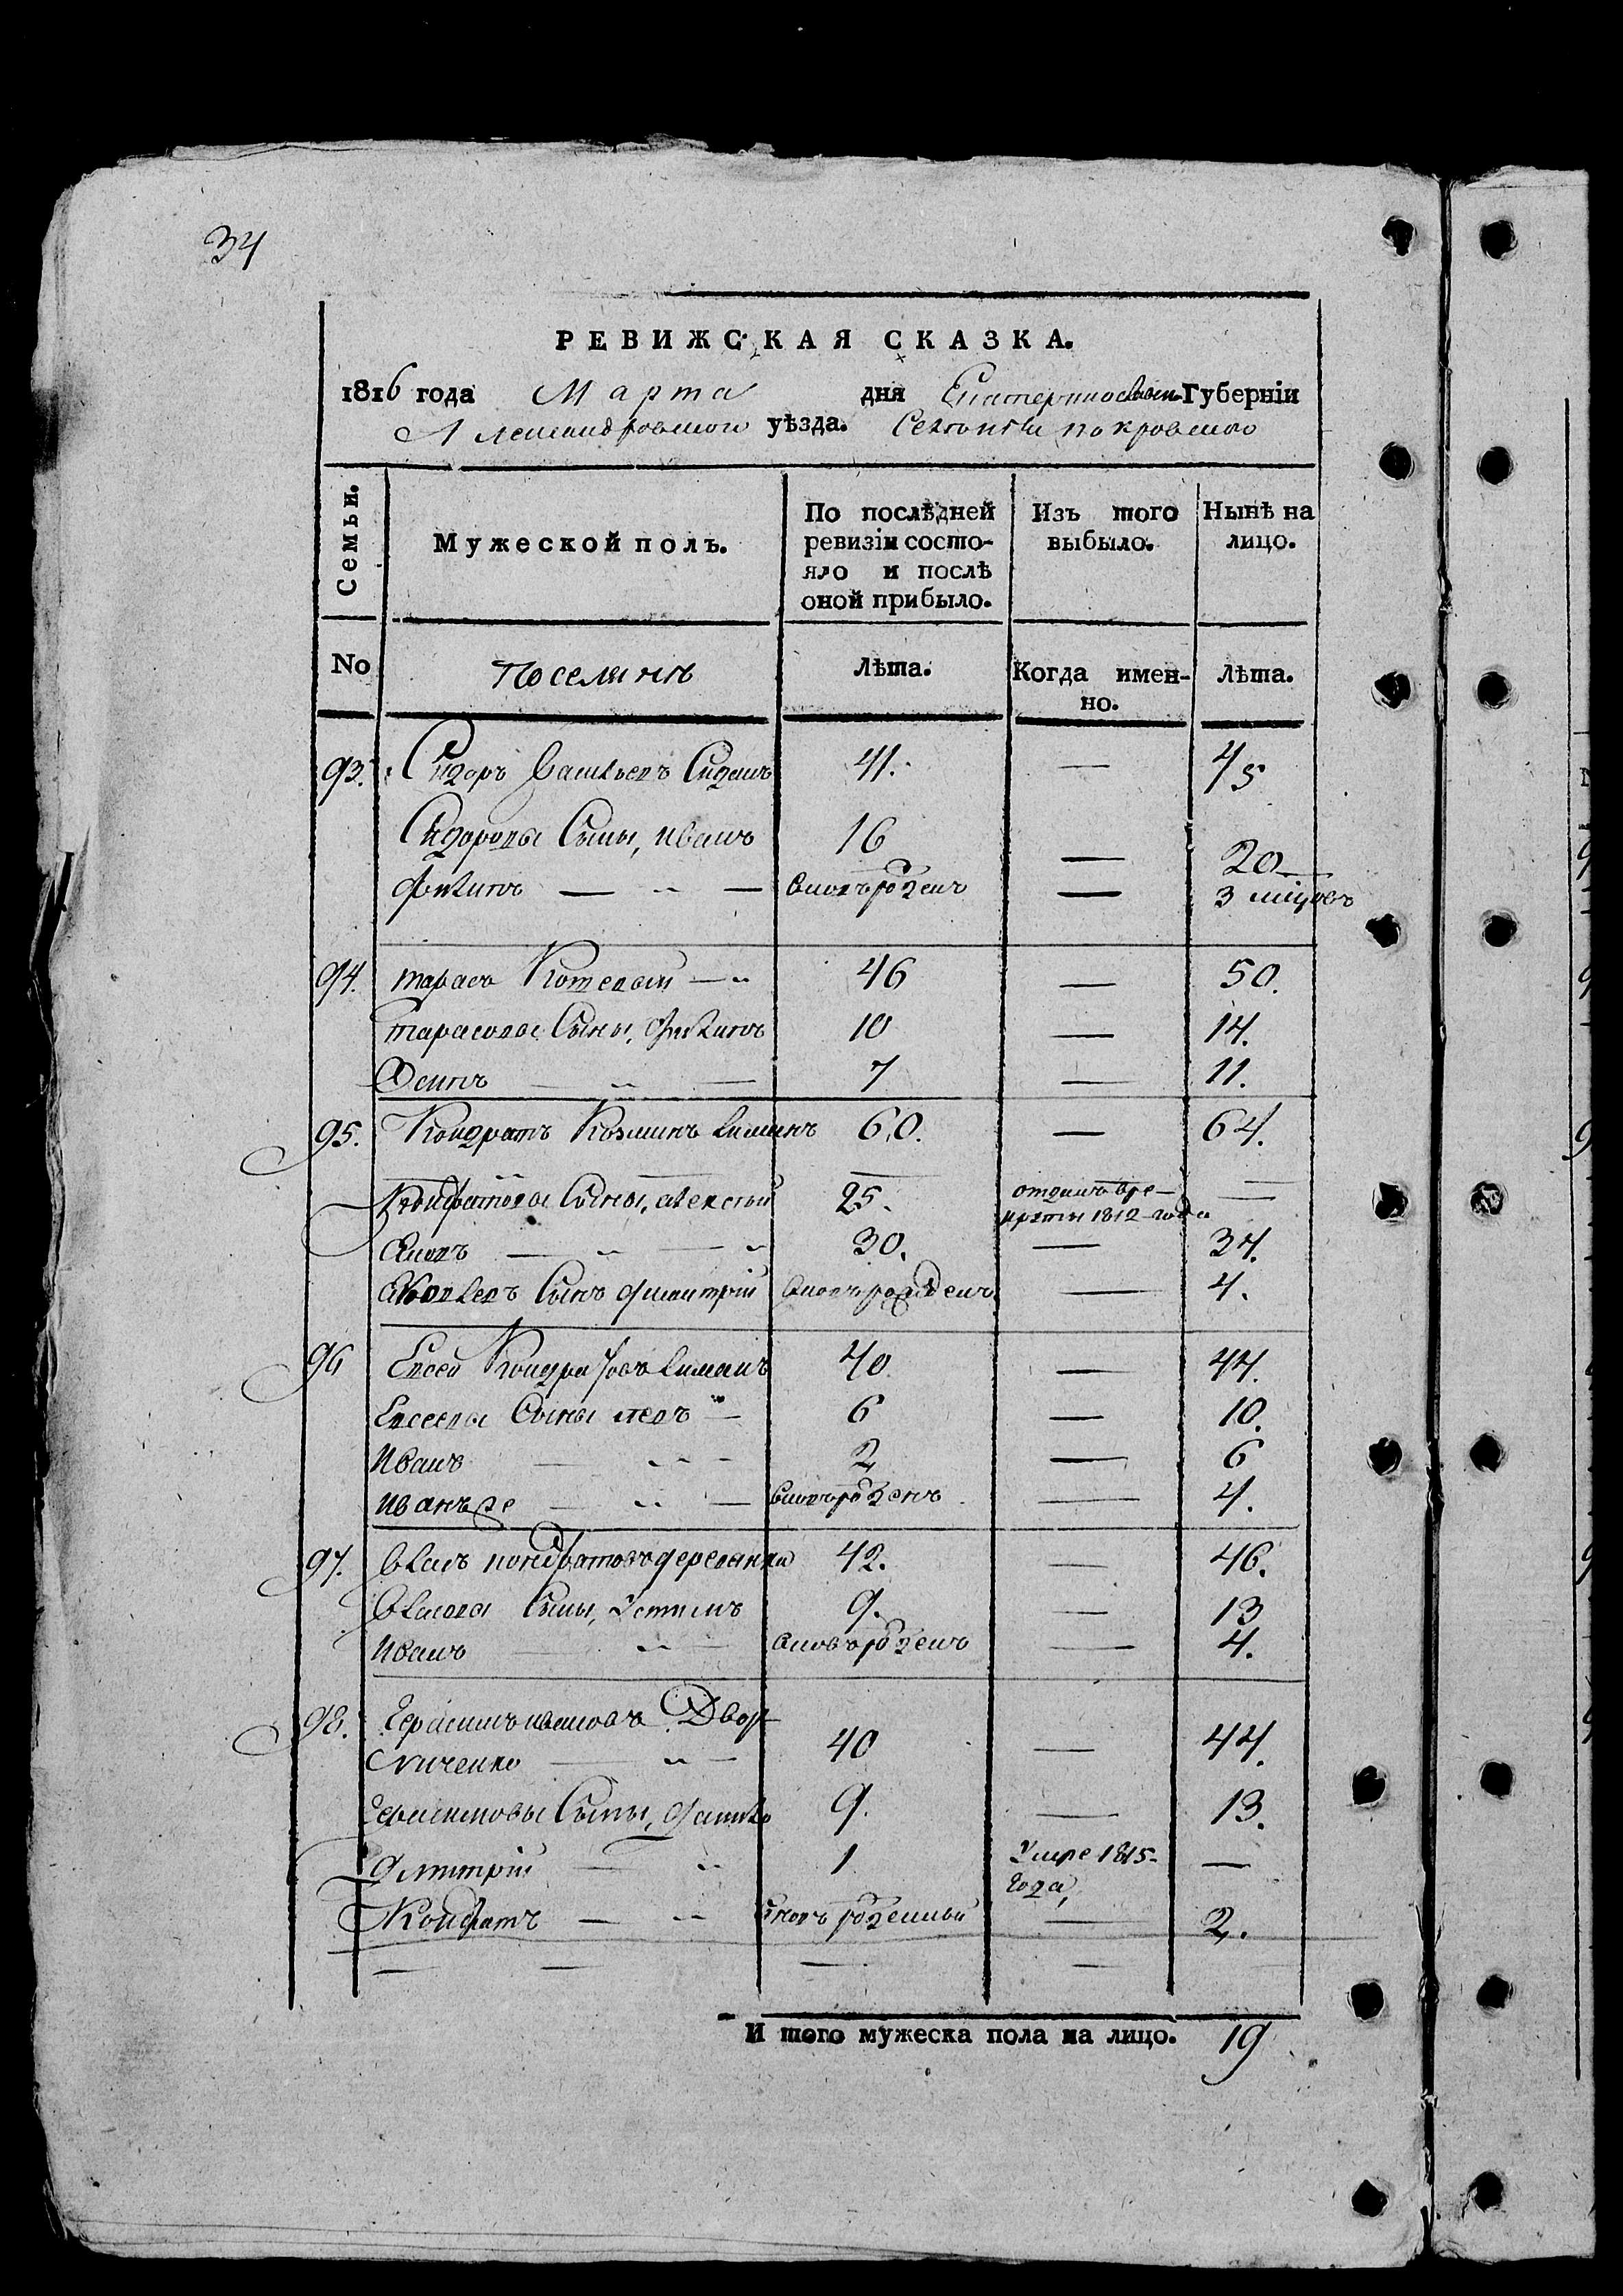 34
РЕВИЖСКАЯ СКАЗКА.
1816 года Марта дня Екатеринославской Губерніи
Александровскои уѣзда. Селенія покровского
Семьи. Мужеской полъ. По послѣдней ревизіи состояло и послѣ оной прибыло. Изъ того выбыло. Нынѣ на лицо.
No Поселянъ Лѣта. Когда именно. Лѣта.
93. Сидоръ Васильевъ 41. — 45
Сидоровы Сыны, иванъ 16 — 20
филипъ — „ — вновьрожденъ — 3 мцовъ
94. тарасъ Котевый — „ 46 — 50.
тарасовы Сыны, филипъ 10 — 14.
Осипъ — „ — 7 — 11.
95. Кондратъ Козминъ 60. — 64.
Кондратовы Сыны, алексѣй 25. отданъ вре-
круты 1812 года —
Яковъ — „ — „ 30. — 34.
Яковлевъ Сынъ дмитрій вновьрожденъ — 4.
96 Евсей Кондратовъ 40 — 44.
Евсеевы Сыны — 6 — 10.
Иванъ — „ - 2 — 6
иванъ же — „ — вновьрожденъ — 4.
97. власъ кондратовъ 42. — 46.
власовы Сыны, устимъ 9. — 13
Иванъ — „ — вновьрожденъ — 4.
98. Герасимъ ивановъ Двор-
ниченко — „ — 40 — 44.
Герасимовы Сыны, 9. — 13.
Дмитрій — „ 1 Умре 1815-
года, —
Кондратъ — „ вновьрожденный — 2.
— — — —
И того мужеска пола на лицо. 19